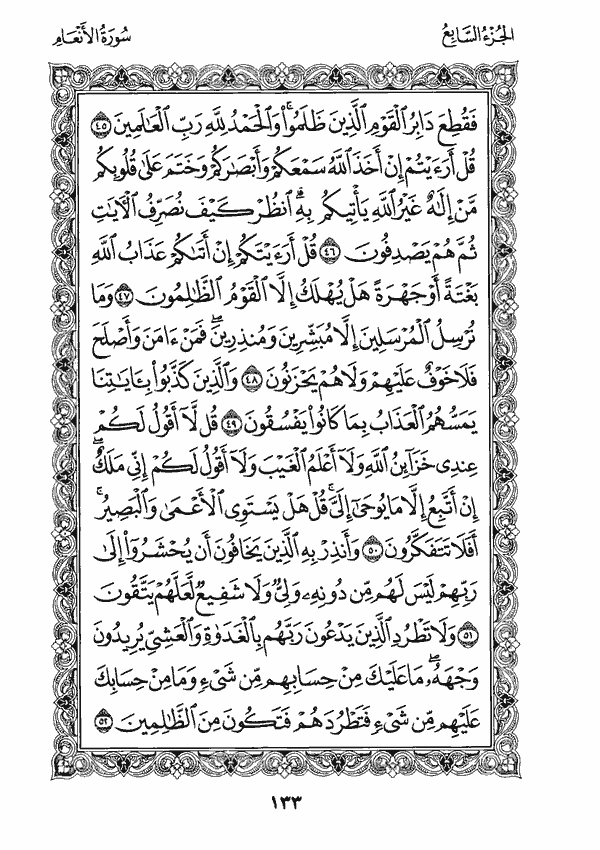 الجزء السابع
سورة الأنعام
فَقُطِعَ دَابِرُ ٱلْقَوْمِ ٱلَّذِينَ ظَلَمُوا۟ ۚ وَٱلْحَمْدُ لِلَّهِ رَبِّ ٱلْعَـٰلَمِينَ ٤٥
قُلْ أَرَءَيْتُمْ إِنْ أَخَذَ ٱللَّهُ سَمْعَكُمْ وَأَبْصَـٰرَكُمْ وَخَتَمَ عَلَىٰ قُلُوبِكُم
مَّنْ إِلَـٰهٌ غَيْرُ ٱللَّهِ يَأْتِيكُم بِهِ ۗ ٱنظُرْ كَيْفَ نُصَرِّفُ ٱلْـَٔايَـٰتِ
ثُمَّ هُمْ يَصْدِفُونَ ٤٦ قُلْ أَرَءَيْتَكُمْ إِنْ أَتَىٰكُمْ عَذَابُ ٱللَّهِ
بَغْتَةً أَوْ جَهْرَةً هَلْ يُهْلَكُ إِلَّا ٱلْقَوْمُ ٱلظَّـٰلِمُونَ ٤٧ وَمَا
نُرْسِلُ ٱلْمُرْسَلِينَ إِلَّا مُبَشِّرِينَ وَمُنذِرِينَ ۖ فَمَنْ ءَامَنَ وَأَصْلَحَ
فَلَا خَوْفٌ عَلَيْهِمْ وَلَا هُمْ يَحْزَنُونَ ٤٨ وَٱلَّذِينَ كَذَّبُوا۟ بِـَٔايَـٰتِنَا
يَمَسُّهُمُ ٱلْعَذَابُ بِمَا كَانُوا۟ يَفْسُقُونَ ٤٩ قُل لَّآ أَقُولُ لَكُمْ
عِندِى خَزَآئِنُ ٱللَّهِ وَلَآ أَعْلَمُ ٱلْغَيْبَ وَلَآ أَقُولُ لَكُمْ إِنِّى مَلَكٌ ۖ
إِنْ أَتَّبِعُ إِلَّا مَا يُوحَىٰٓ إِلَىَّ ۚ قُلْ هَلْ يَسْتَوِى ٱلْأَعْمَىٰ وَٱلْبَصِيرُ ۚ
أَفَلَا تَتَفَكَّرُونَ ٥٠ وَأَنذِرْ بِهِ ٱلَّذِينَ يَخَافُونَ أَن يُحْشَرُوٓا۟ إِلَىٰ
رَبِّهِمْ ۙ لَيْسَ لَهُم مِّن دُونِهِۦ وَلِىٌّ وَلَا شَفِيعٌ لَّعَلَّهُمْ يَتَّقُونَ
٥١ وَلَا تَطْرُدِ ٱلَّذِينَ يَدْعُونَ رَبَّهُم بِٱلْغَدَوٰةِ وَٱلْعَشِىِّ يُرِيدُونَ
وَجْهَهُۥ ۖ مَا عَلَيْكَ مِنْ حِسَابِهِم مِّن شَىْءٍ وَمَا مِنْ حِسَابِكَ
عَلَيْهِم مِّن شَىْءٍ فَتَطْرُدَهُمْ فَتَكُونَ مِنَ ٱلظَّـٰلِمِينَ ٥٢
١٣٣